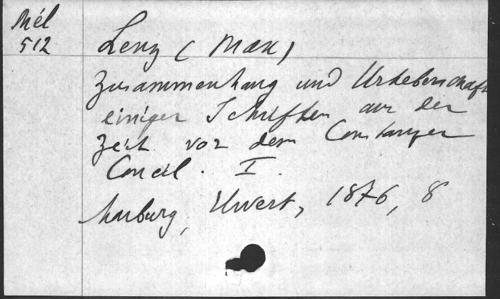 Mél
512
Lenz (Max)
Zusammenhang und Urheberschaft
einiger Schriften aus der
Zeit vor dem Constanzer
Concil. I.
Marburg, Elwert, 1876, 8